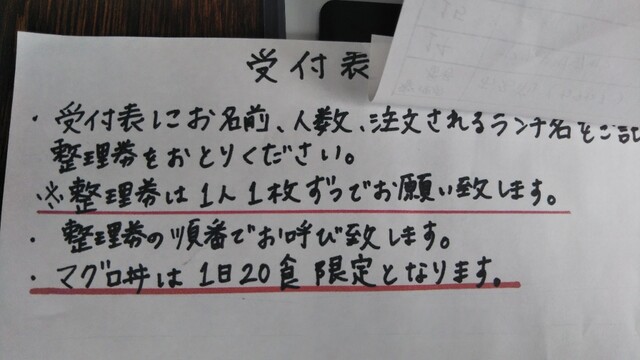 受付表
・受付表にお名前、人数、注文されるランチ名をご記
整理券をおとりください。
※整理券は1人1枚ずつでお願い致します。
・整理券の順番でお呼び致します。
・マグロ丼は1日20食限定となります。